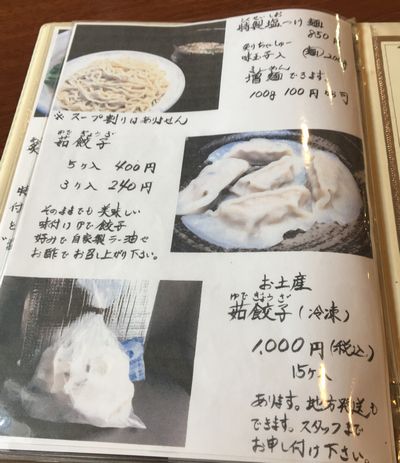 とくせいしお
特製塩つけ麺
850
味玉子入
ぞうめん
増麺できます
100g 100円
※スープ割りはありません
ゆで ぎょうざ
茹餃子
5ヶ入 400円
3ヶ入 240円
そのままでも美味しい
味付けゆで餃子
好みで自家製ラー油や
お酢でお召し上がり下さい。
お土産
ゆで ぎょうざ
茹餃子(冷凍)
1,000円(税込)
15ヶ入
あります。地方発送も
できます。スタッフまで
お申し付け下さい。